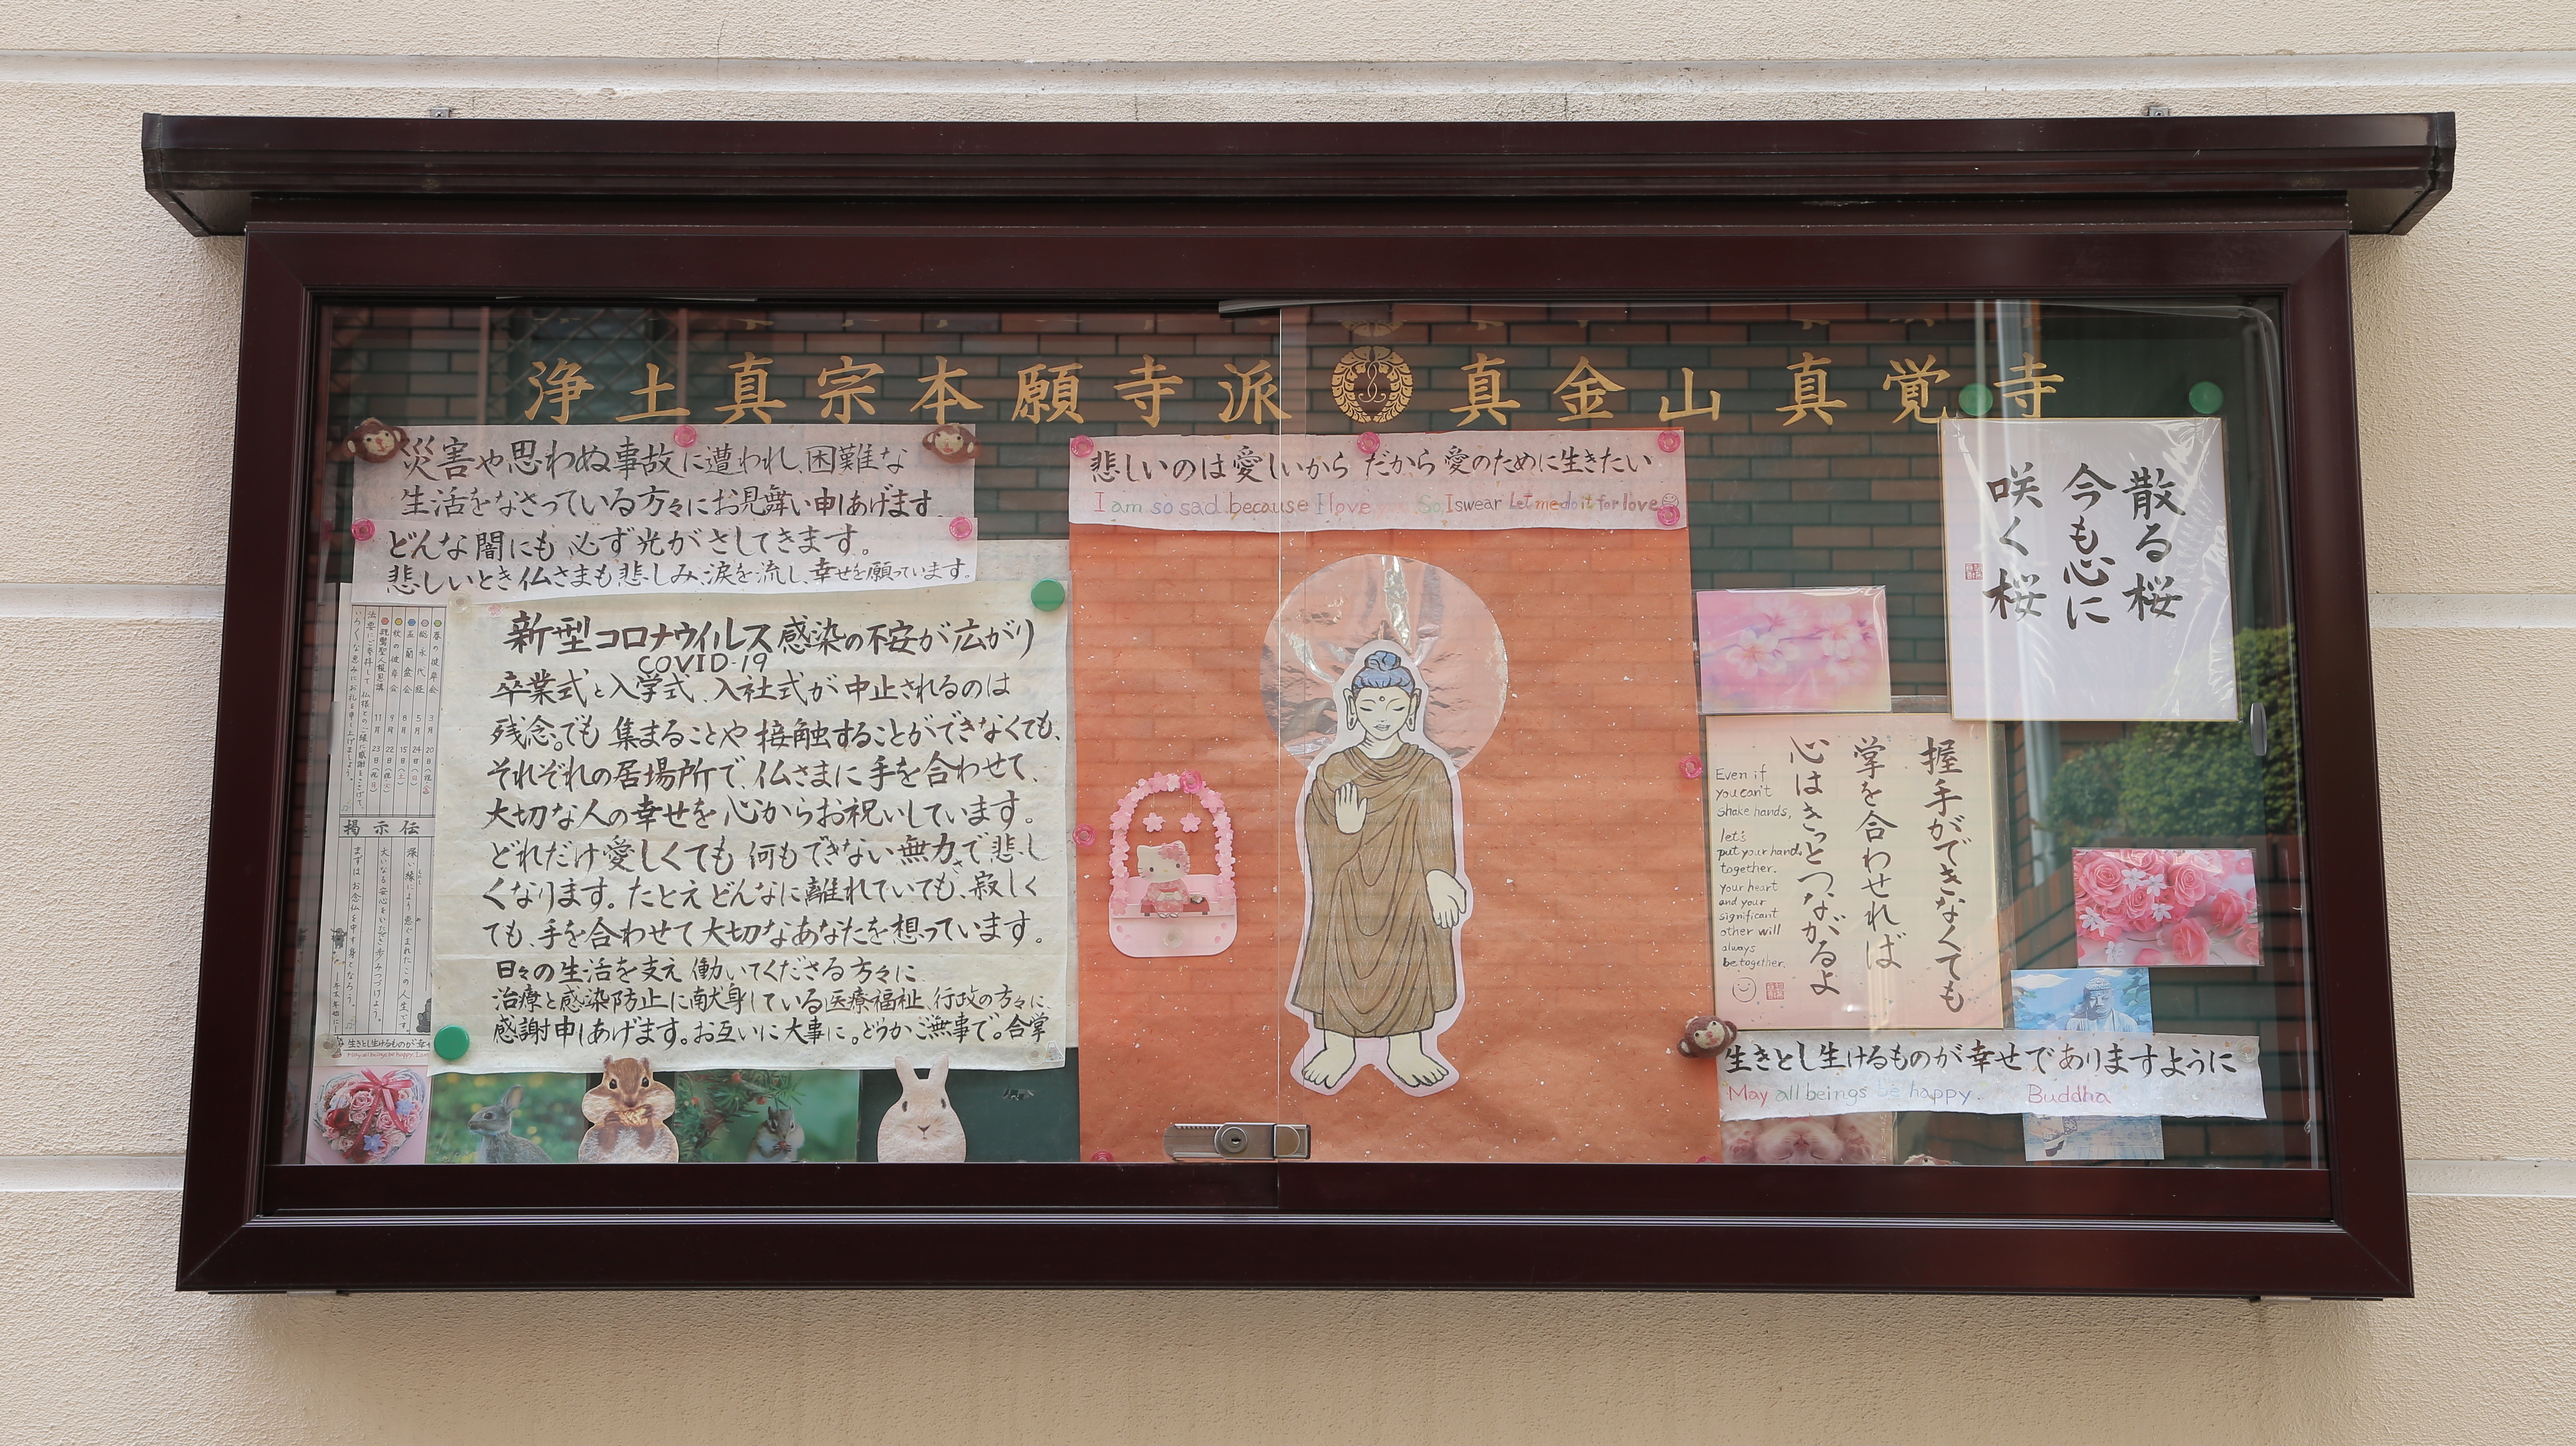 浄土真宗本願寺派 真金山真覚寺
災害や思わぬ事故に遭われ、困難な
生活をなさっている方々にお見舞い申しあげます。
どんな闇にも必ず光がさしてきます。
悲しいとき仏さまも悲しみ、涙を流し、幸せを願っています。
新型コロナウイルス感染の不安が広がり
COVID-19
卒業式と入学式、入社式が中止されるのは
残念。でも集まることや接触することができなくても、
それぞれの居場所で、仏さまに手を合わせて、
大切な人の幸せを心からお祝いしています。
どれだけ愛しくても何もできない無力さで悲し
くなります。たとえどんなに離れていても、寂しく
ても、手を合わせて大切なあなたを想っています。
日々の生活を支え働いてくださる方々に
治療と感染防止に献身している医療福祉、行政の方々に、
感謝申しあげます。お互いに大事に。どうかご無事で。合掌
春の彼岸会 3月20日
総永代経 5月24日(日)
盂蘭盆会 8月15日(土)
秋の彼岸会 9月22日
親鸞聖人報恩講 11月23日
掲示伝
深い縁により恵まれたこの人生です。
まずはお念仏を申す身となろう。
生きとし生けるものが幸せ
May all beings be happy.
悲しいのは愛しいから だから愛のために生きたい
I am so sad because I love So, I swear Let me do it for love
散る桜
今も心に
咲く桜
握手ができなくても
掌を合わせれば
心はきっとつながるよ
Even if
you can't
shake hands,
let's
put your hands
together.
your heart
and your
significant
other will
always
be together.
生きとし生けるものが幸せでありますように
May all beings be happy. Buddha